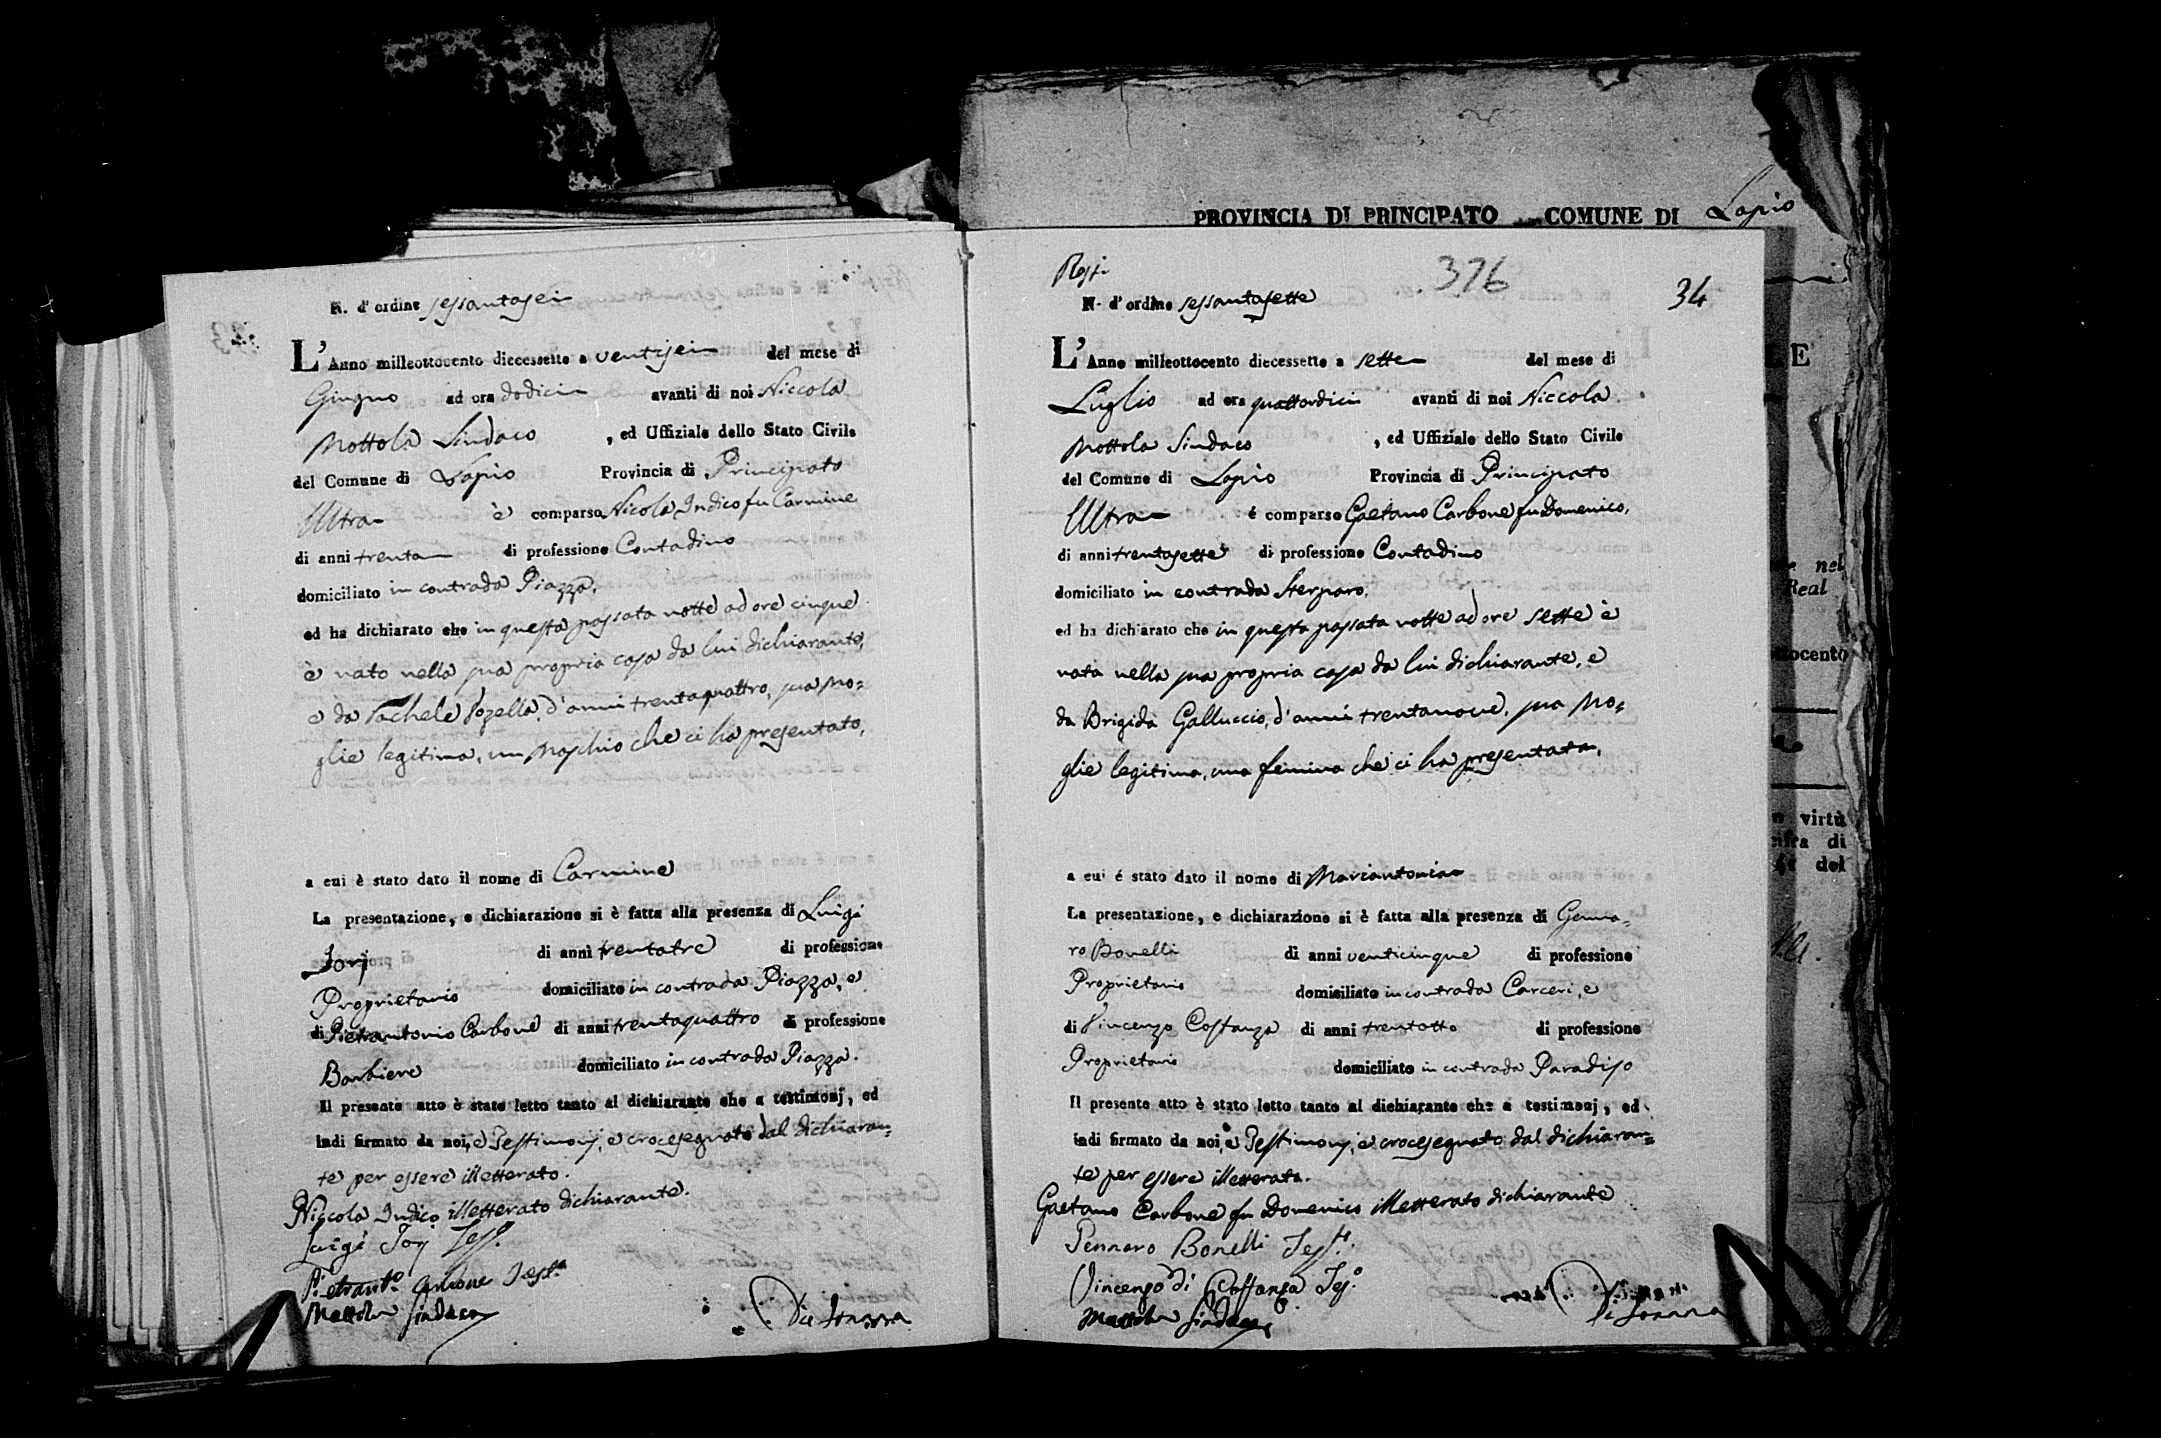 N. d'ordine sessantasei
L'Anno milleottocento diecessette a ventisei del mese di
Giugno ad ora dodici avanti di noi Niccola
Mottola Sindaco , ed Uffiziale dello Stato Civile
del Comune di Lapio Provincia di Principato
Ultra è comparso Nicola Indico fu Carmine
di anni trenta di professione Contadino
domiciliato in contrada Piazza,
ed ha dichiarato che in questa passata notte ad ore cinque
è nato nella sua propria casa da lui dichiarante,
e da Rachele d'anni trentaquattro, sua Mo=
glie legitima, un Maschio che ci ha presentato,
a cui è stato dato il nome di Carmine
La presentazione, e dichiarazione si è fatta alla presenza di Luigi
Jorj di anni trentatre di professione
Proprietario domiciliato in contrada Piazza, e
di Pietrantonio Carbone di anni trentaquattro di professione
Barbiere domiciliato in contrada Piazza.
Il presente atto è stato letto tanto al dichiarante che a testimonj, ed
indi firmato da noi, e Testimonj, e crocesegnato dal dichiaran=
te per essere illetterato.
Niccola Indico illetterato dichiarante.
Luigi Jorj Tes.º
Pietrant.º Carbone Test.º
Mottola Sindaco
PROVINCIA DI PRINCIPATO COMUNE DI Lapio
376
34
N. d'ordine sessantasette
L'Anno milleottocento diecessette a sette del mese di
Luglio ad ora quattordici avanti di noi Niccola
Mottola Sindaco , ed Uffiziale dello Stato Civile
del Comune di Lapio Provincia di Principato
Ultra é comparso Gaetano Carbone fu Domenico,
di anni trentasette di professione Contadino
domiciliato in contrada Sterparo,
ed ha dichiarato che in questa passata notte ad ore sette è
nata nella sua propria casa da lui dichiarante, e
da Brigida Galluccio, d'anni trentanove, sua Mo=
glie legitima, una femina che ci ha presentata,
a cui é stato dato il nome di Mariantonia
La presentazione, e dichiarazione si è fatta alla presenza di Genna=
ro Bonelli di anni venticinque di professione
Proprietario domiciliato in contrada Carceri, e
di Vincenzo Costanza di anni trentotto di professione
Proprietario domiciliato in contrada Paradiso
Il presente atto è stato letto tanto al dichiarante che a testimonj, ed
indi firmato da noi, e Testimonj, e crocesegnato dal dichiaran=
te per essere illetterato.
Gaetano Carbone fu Domenico illetterato dichiarante
Gennaro Bonelli Test.º
Vincenzo di Costanza Tes.º
Mottola Sindaco
LE
nel
Real
ttocento
virtù
di
del